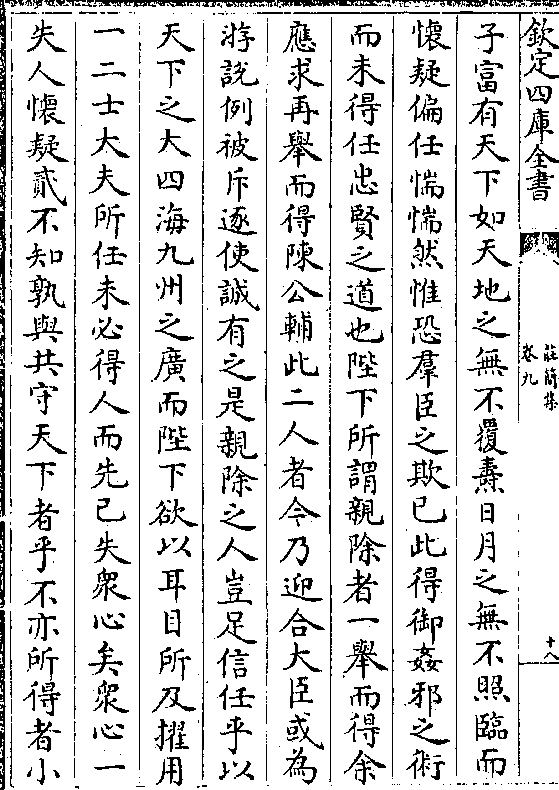 欽定四庫全書
莊簡集
卷九
十八
子富有天下如天地之無不覆燾日月之無不照臨而
懷疑偏任惴惴然惟恐羣臣之欺已此得御姦邪之術
而未得任忠賢之道也陛下所謂親除者一舉而得余
應求再舉而得陳公輔此二人者今乃迎合大臣或為
游說例被斥逐使誠有之是親除之人豈足信任乎以
天下之大四海九州之廣而陛下欲以耳目所及擢用
一二士大夫所任未必得人而先已失衆心矣衆心一
失人懷疑貳不知孰與共守天下者乎不亦所得者小